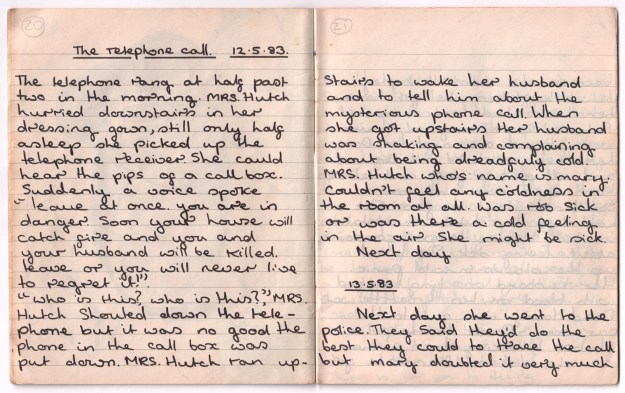 20
The telephone call. 12.5.83.
The telephone rang at half past
two in the morning. MRS. Hutch
hurried downstairs in her
dressing gown, still only half
asleep she picked up the
telephone receiver. She could
hear the pips of a call box.
Suddenly a voice spoke
"leave at once. you are in
danger. Soon your house will
catch fire and you and
your husband will be killed.
leave or you will never live
to regret it!".
"Who is this? who is this?", MRS.
Hutch shouted down the tele-
phone but it was no good the
phone in the call box was
put down. MRS. Hutch ran up-
21
Stairs to wake her husband
and to tell him about the
mysterious phone call. When
she got upstairs Her husband
was shaking and complaining
about being dreadfuly cold.
MRS. Hutch who's name is mary.
Couldn't feel any coldness in
the room at all. Was rob Sick
or was there a cold feeling
in the air She might be sick.
Next day
13.5.83
Next day she went to the
police. They Said they'd do the
best they could to trace the call
but mary doubted it very much